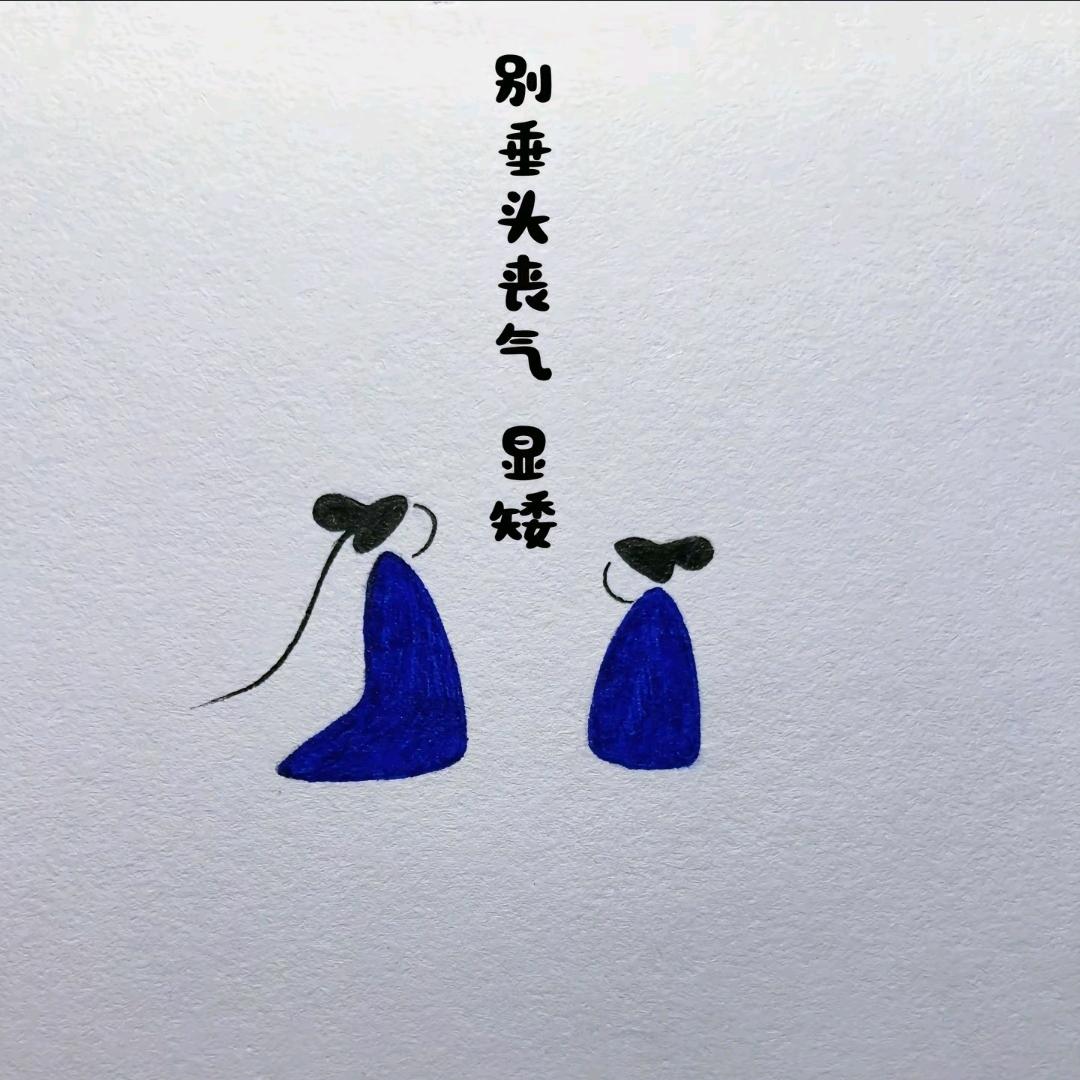 别垂头丧气 显矮